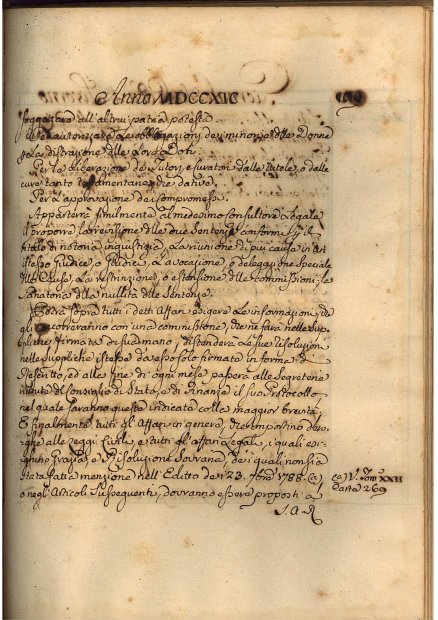 Anno MDCCXIC
soggettava all'altrui patria potestà.
Per autorizzare le obbligazioni dei minori, e delle Donne
e la distrazione delle loro Doti.
Per la liberazione de Tutori, e curatori dalle tutele, o dalle
cure tanto testamentarie che dative.
Per l'approvazione dei compromessi.
Apparterrà similmente al medesimo Consultore Legale
il proporre la revisione delle due Sentenze conformi per il
titolo di notoria ingiustizia, La riunione di più cause in un
istesso Giudice, o Giudici, La avocazione, o delegazione speciale
delle Cause, La restrizione, o estensione delle commissioni, le
Sanatorie della nullità delle Sentenze.
Potrà sopra tutti i detti Affari esigere le informazioni, che
gli occorreranno con una commissione, che ne farà nelle sup-
pliche firmata di sua mano; distenderà le sue risoluzioni
nelle suppliche istesse da esso solo firmate in forma di
Rescritto, ed alla fine di ogni mese passerà alle Segreterie
riunite di Consiglio di Stato, e di Finanze il suo Protocollo
nel quale saranno queste indicate colla maggior brevità;
E finalmente tutti gl'Affari in genere, che importino dero-
ghe alle Leggi Civili, e tutti gl'affari Legali, i quali esi-
ghino Grazia, e Risoluzione Sovrana, dei quali non sia
stata fatta menzione nell'Editto dei 23. 1788. (a)
o negli Articoli susseguenti, dovranno essere proposti a
S. A. R
(a) V. Tom XXII
Carta 269